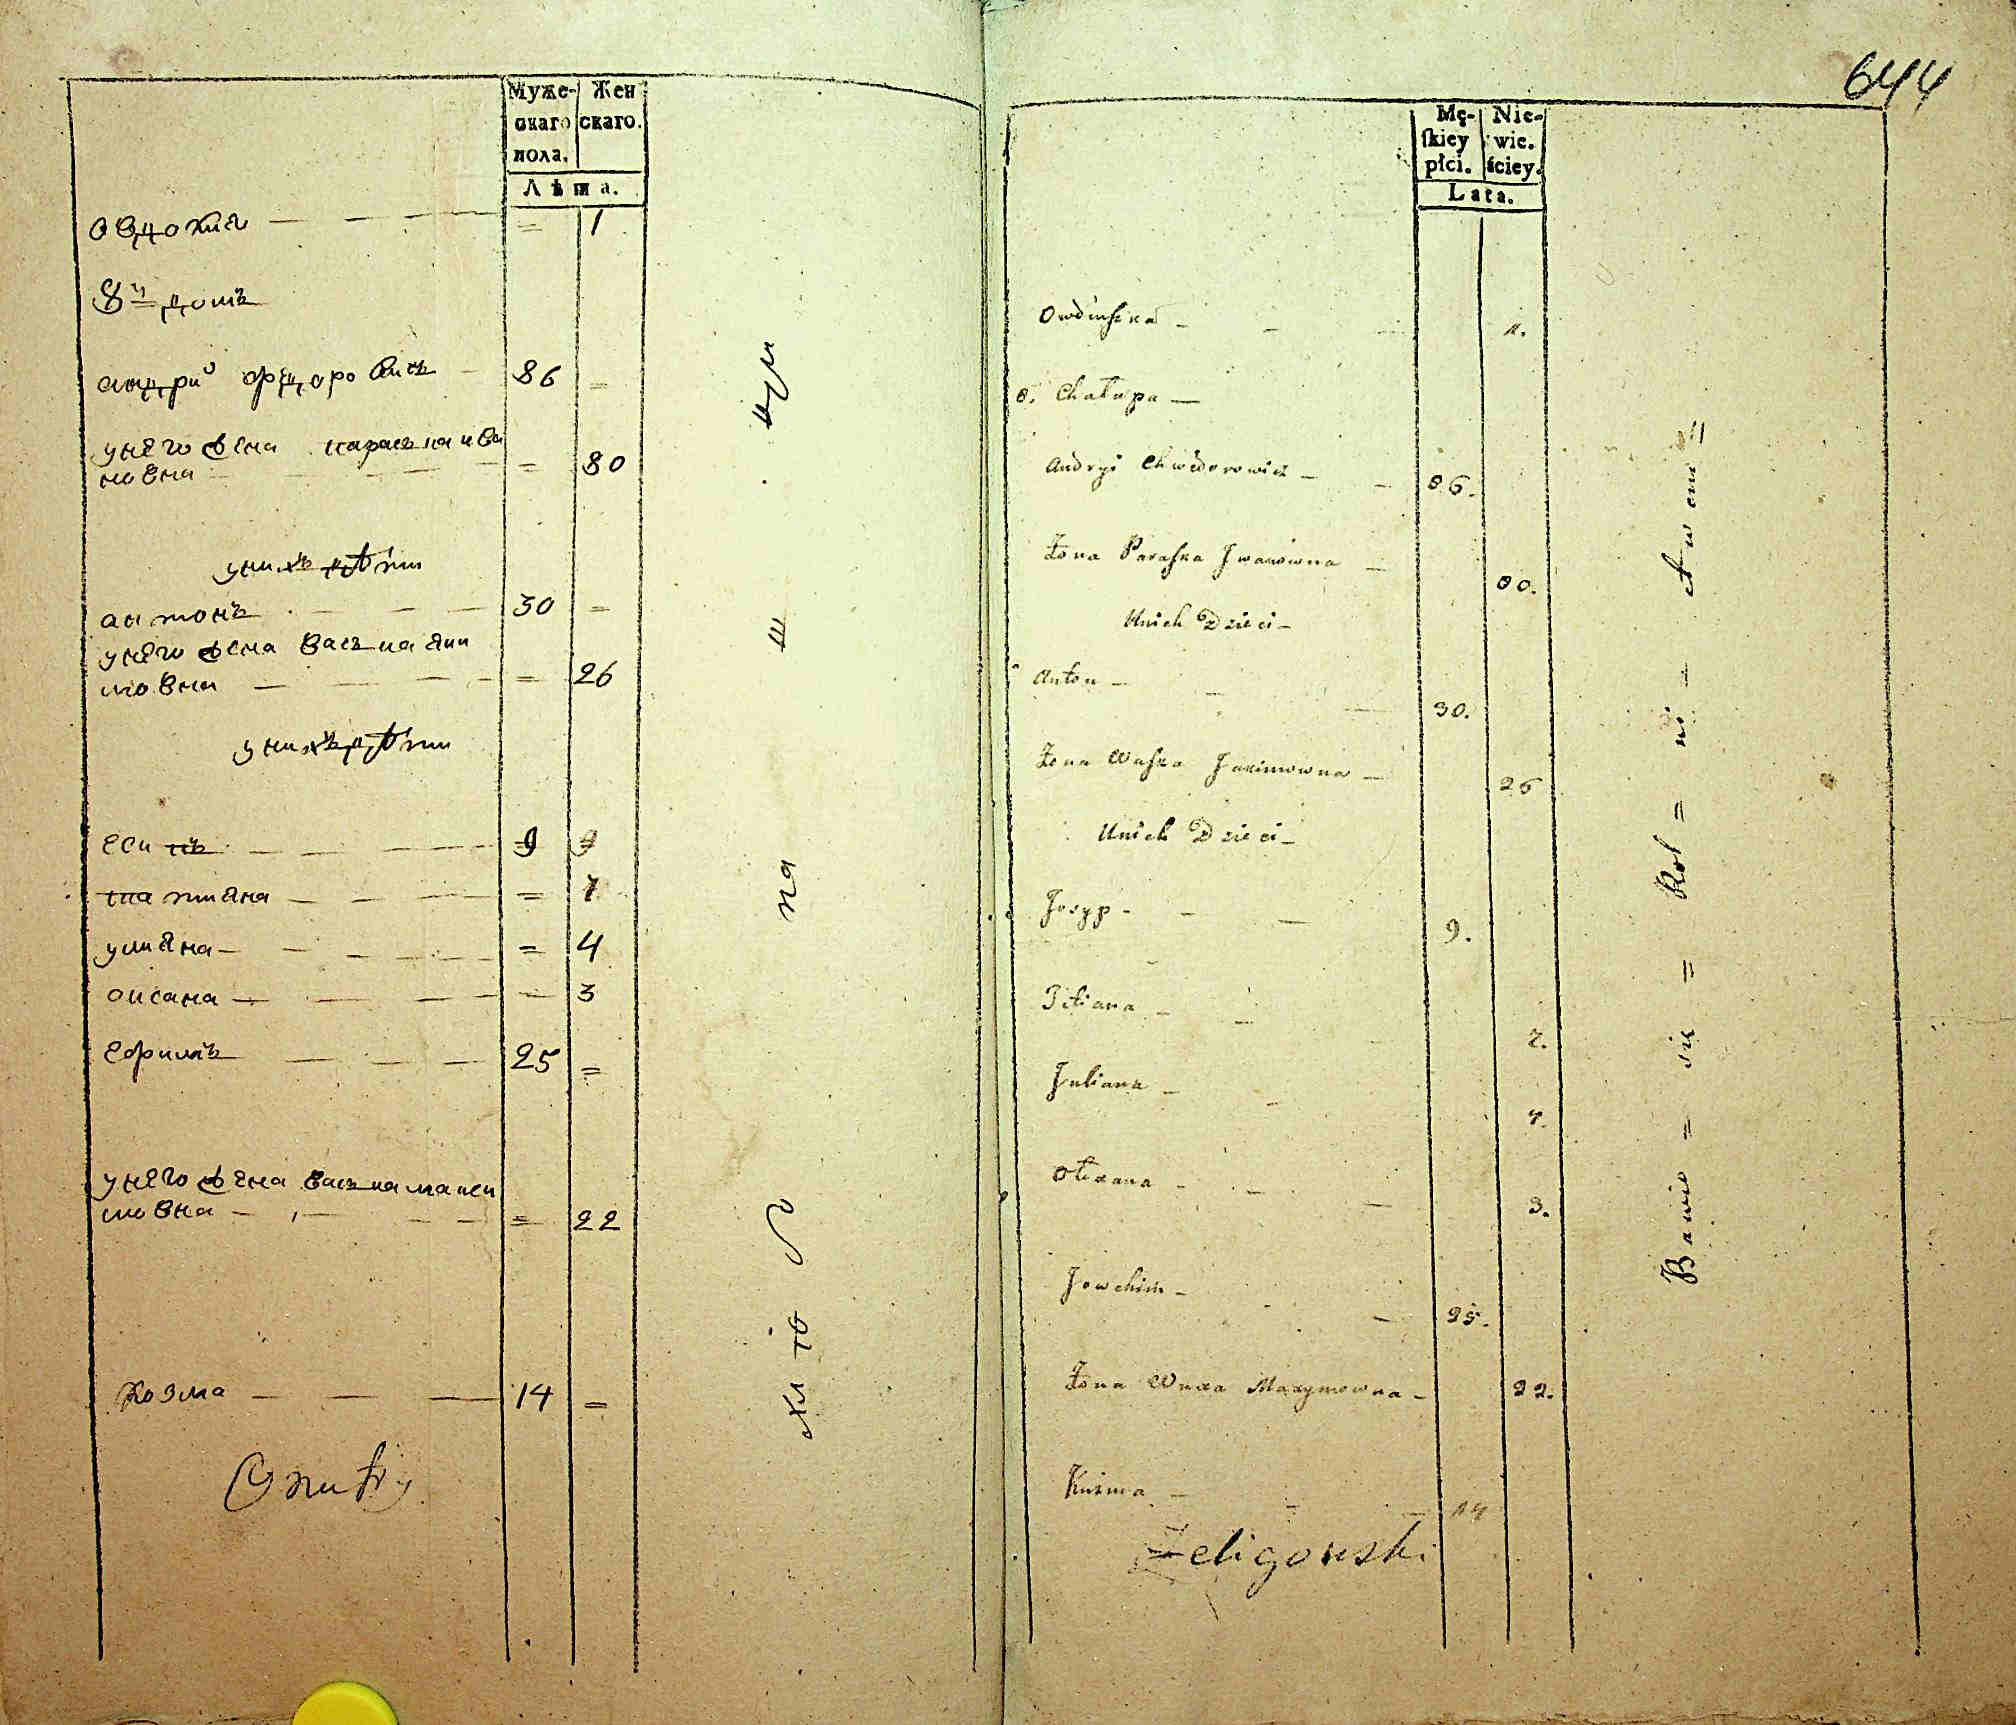 Муже- Жен
скаго скаго.
пола.
Лѣта.
овдокия — — — = 1
8й домъ
андрий фєдоровичъ — 86 =
унего жена параскa ива
новна — — — = 80
унихъ дѣти
антонъ — — — 30 =
унего жена васька яки
мовна — — — = 26
унихъ дѣти
єсипъ — — — 9
татияна — — — = 7
улияна — — — = 4
оксана — — — = 3
єфимъ — — — 25 =
унего жена васька макси
мовна — — — = 22
козма — — — 14 =
644
Mę- Nie-
skiey wie.
płci. ściey.
Lata.
Owdiushka — — 1.
8. Chałupa —
Andryi Chwedorowicz — — 86.
Żona Paraska Iwanowna — 80.
Unich Dzieci —
Anton — — 30.
Żona Waska Jakimowna — 26
Unich Dzieci —
Josyp — — — 9.
Titiana — — 7.
Juliana — — 4.
Olexana — — — 3.
Jowchim — — 25.
Żona Waxa Maxymowna — 22.
Kuzma — — — 14
Żeligowski